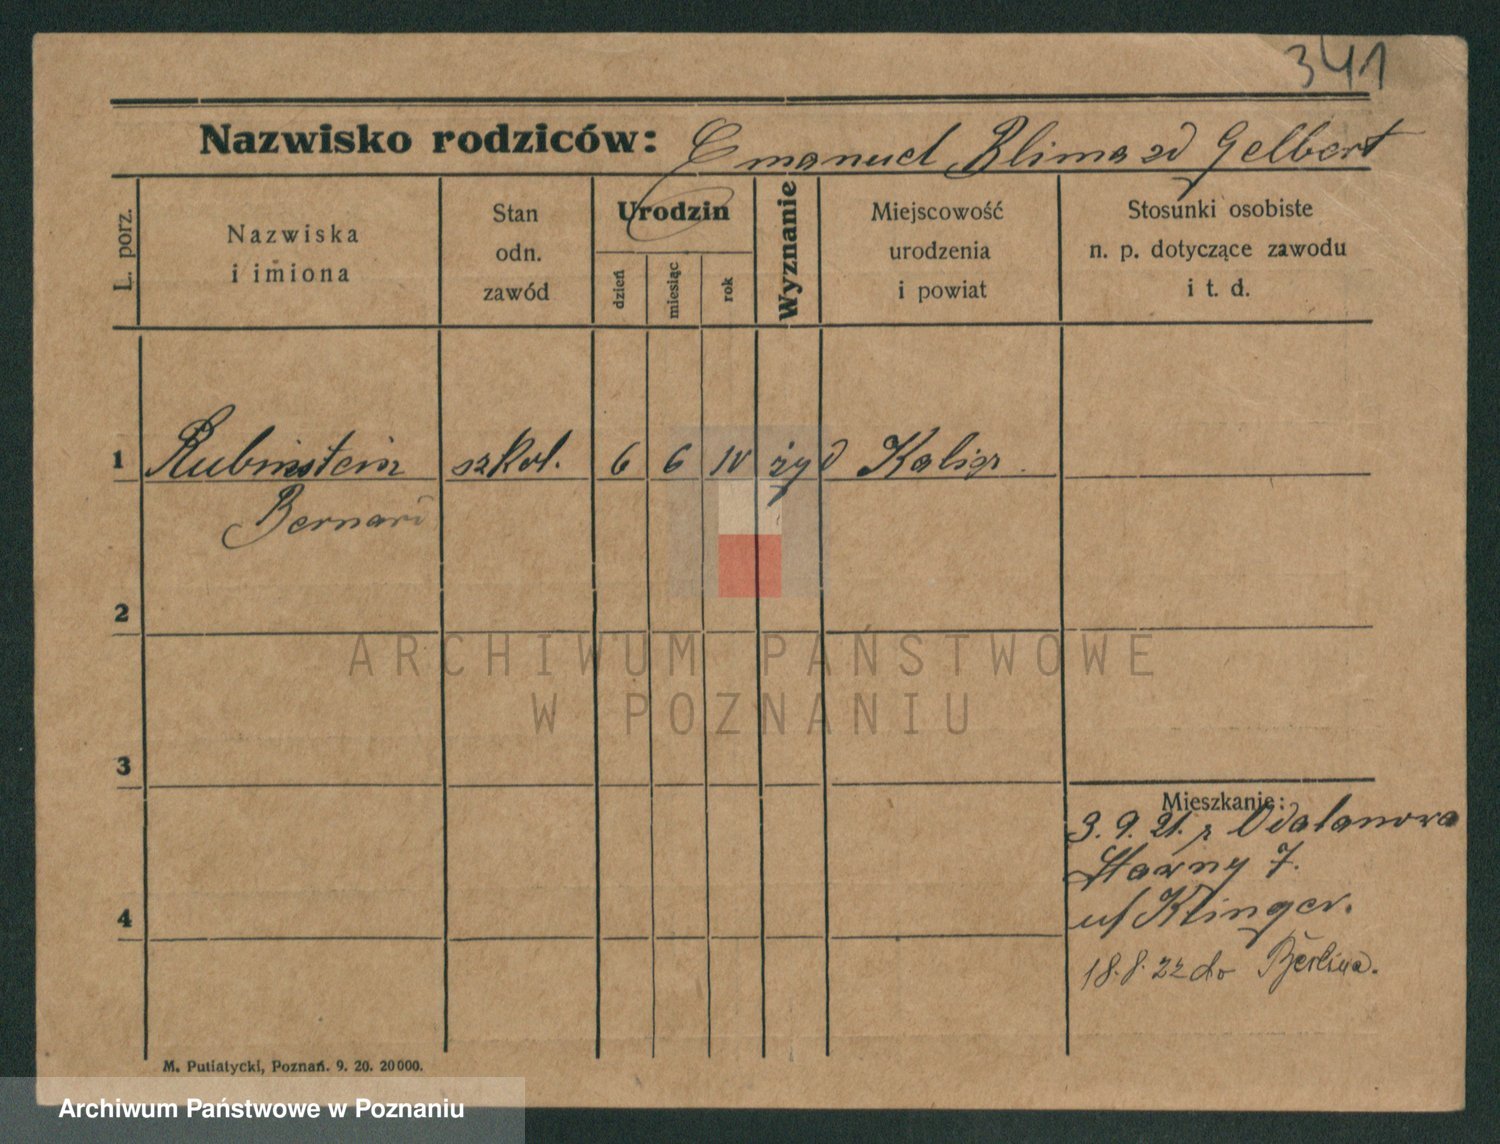 341
Nazwisko rodziców: Emanuel, Blima zd Gelbert
L. porz.
Nazwiska
i imiona
Stan
odn.
zawód
Urodzin
dzień
miesiąc
rok
Wyznanie
Miejscowość
urodzenia
i powiat
Stosunki osobiste
n. p. dotyczące zawodu
i t. d.
1 Rubinstein szkol. 6 6 10 żyd Kalisz
Bernard
2
ARCHIWUM PAŃSTWOWE
W POZNANIU
3
Mieszkanie:
3. 9. 21. z Odolanowa
7.
u/ Klinger.
4
18. 8. 22 do Berlina.
M. Putiatycki, Poznań. 9. 20. 20000.
Archiwum Państwowe w Poznaniu